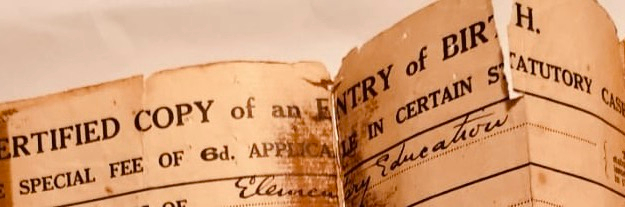 ERTIFIED COPY of an ENTRY of BIRTH.
E SPECIAL FEE OF 6d. APPLICABLE IN CERTAIN STATUTORY CASE
OF Elementary Education